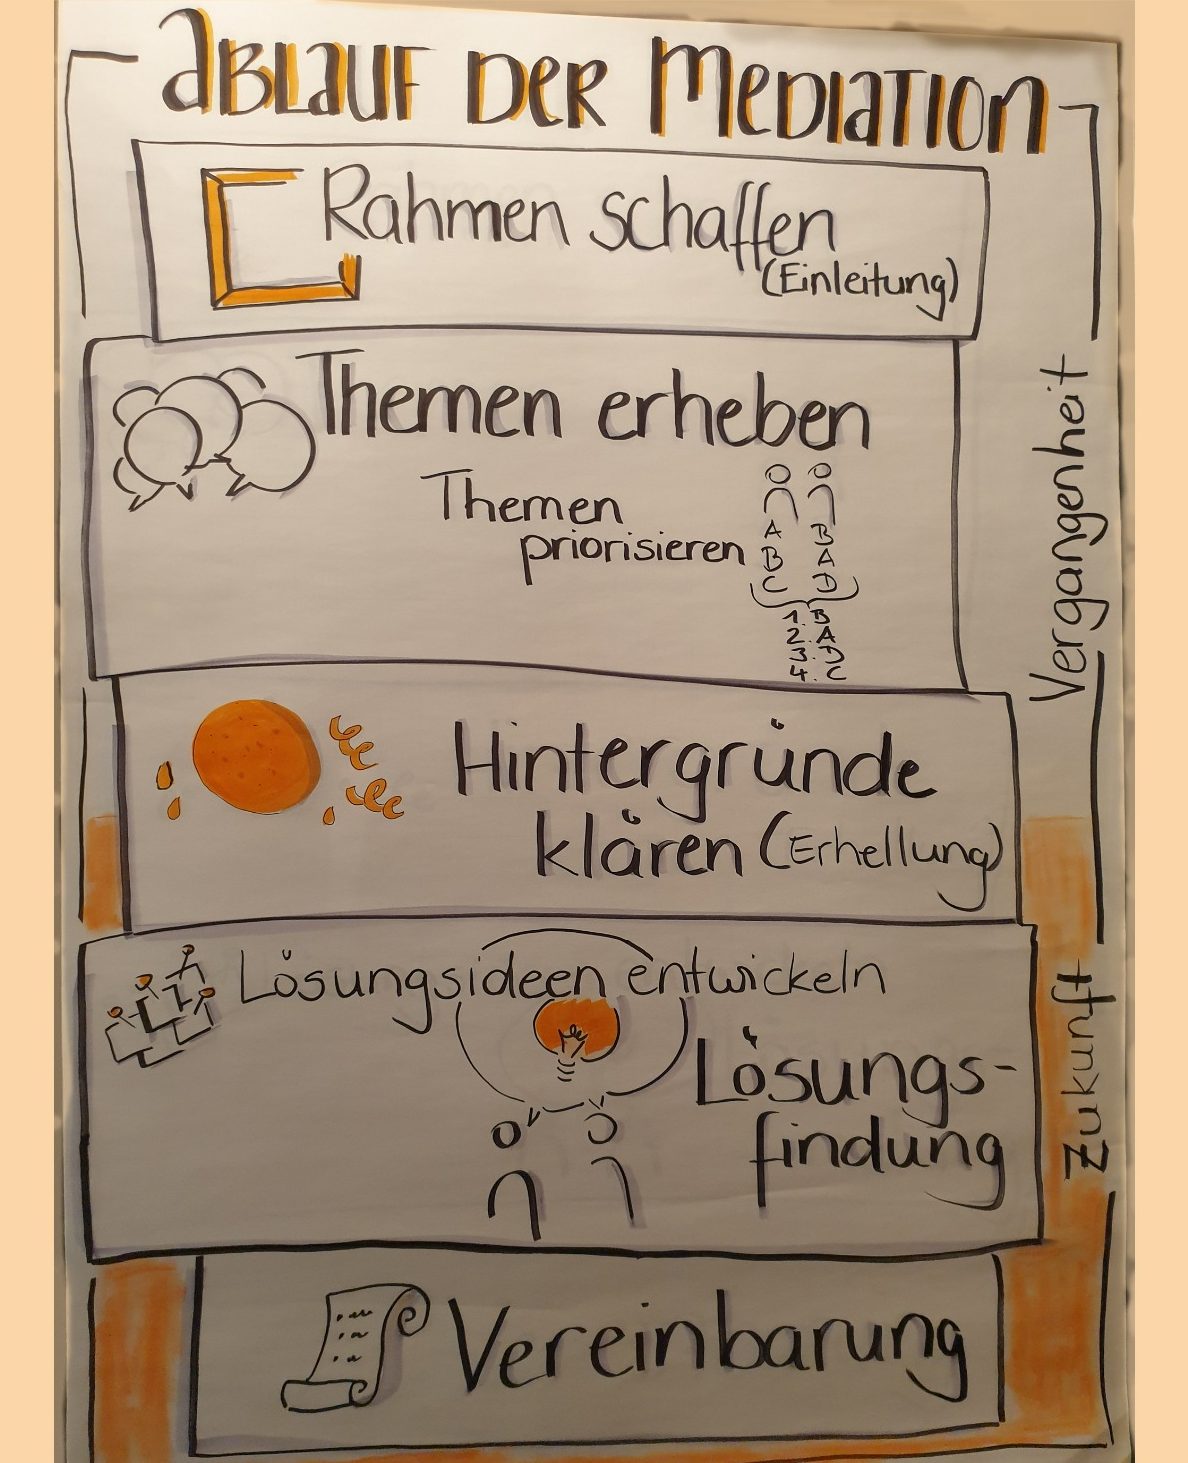 Ablauf der Mediation
Rahmen schaffen
(Einleitung)
Themen erheben
Themen
priorisieren
A B
B A
C D
1. B
2. A
3. D
4. C
Vergangenheit
Hintergründe
klären (Erhellung)
Lösungsideen entwickeln
Lösungs-
findung
Zukunft
Vereinbarung